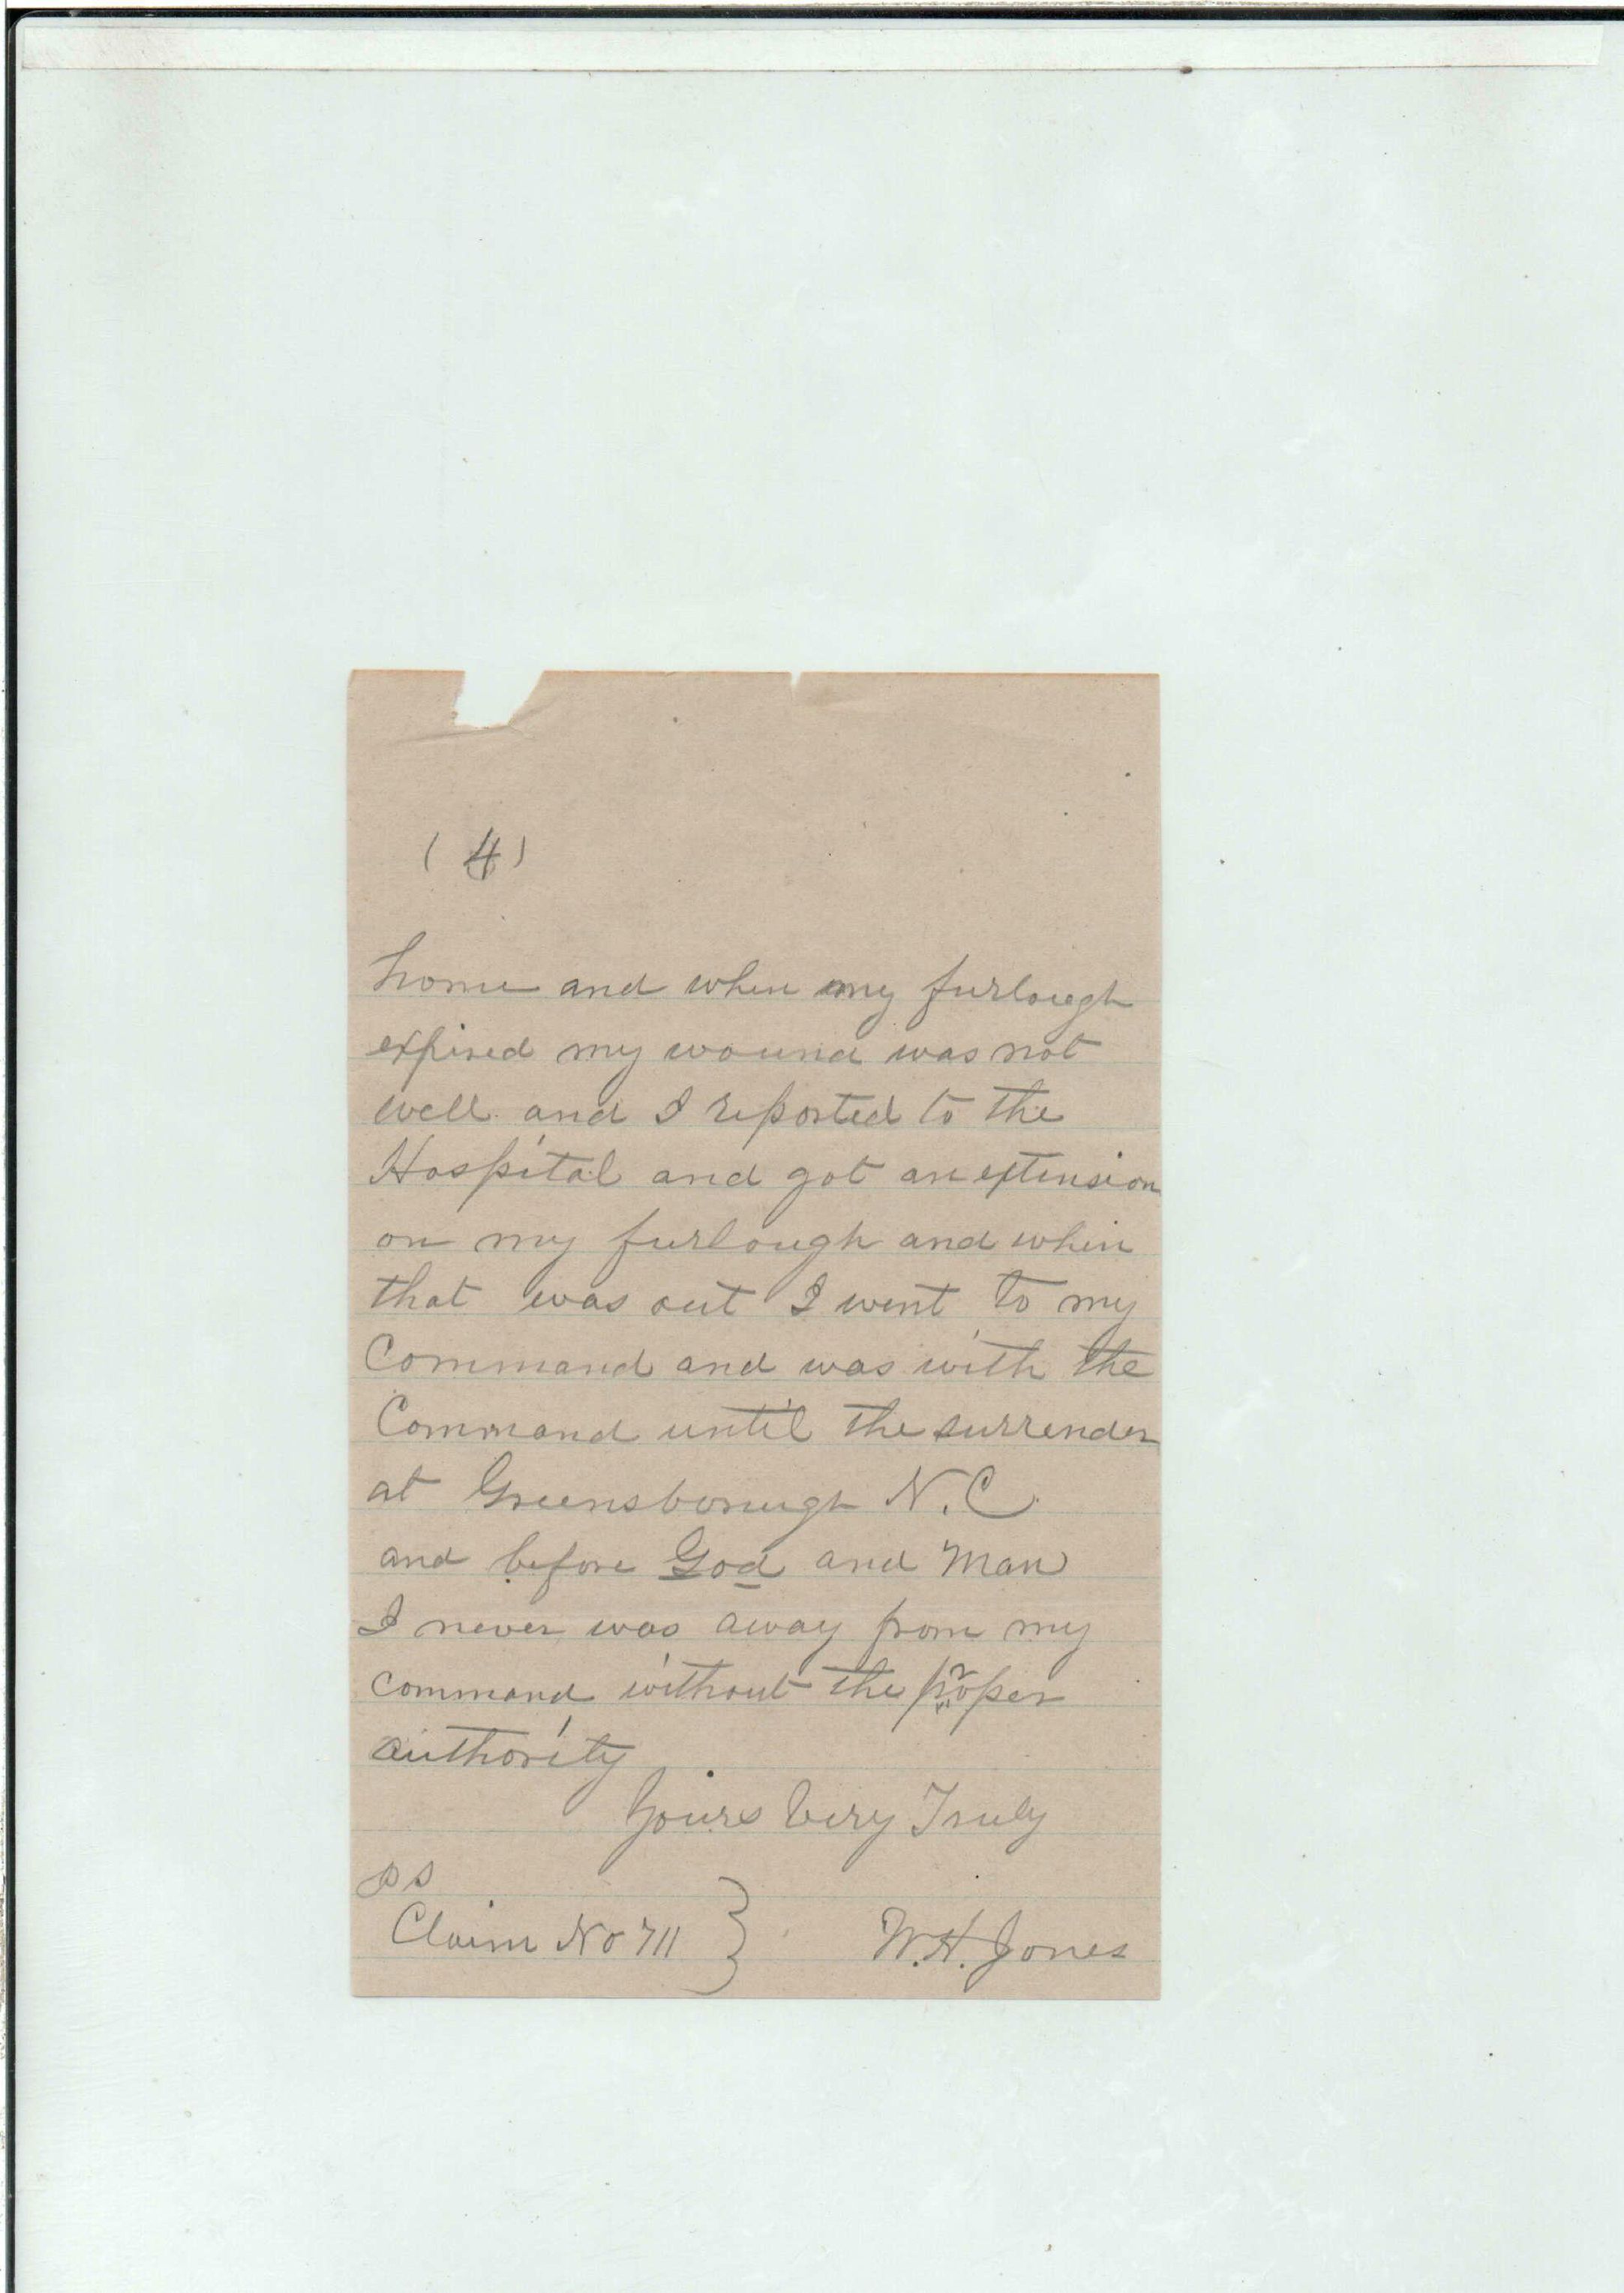 (4)
home and when my furlough
expired my wound was not
well and I reported to the
Hospital and got an extension
on my furlough and when
that was out I went to my
Command and was with the
Command until the surrender
at Greensborough N.C.
and before God and Man
I never was away from my
command without the proper
authority
Yours Very Truly
PS
Claim No 711 } W.H. Jones